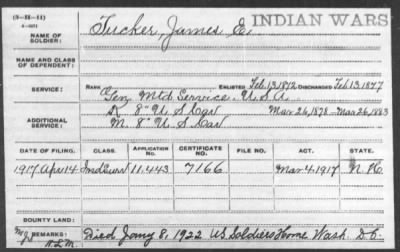 (3-35-11)
INDIAN WARS
NAME OF SOLDIER: Tucker, James E.
NAME AND CLASS OF DEPENDENT:
SERVICE: RANK ENLISTED Feb. 13, 1872 DISCHARGED Feb. 13, 1877
Gen. Mtd Service. U.S.A.
ADDITIONAL SERVICE: K. 8" U S Cav Mar 26, 1878 - Mar 26, 1883
M. 8" U S Cav
DATE OF FILING. CLASS. APPLICATION NO. CERTIFICATE NO. FILE NO. ACT. STATE.
1917 Apr 14 Ind Surv 11.443 7166 Mar 4, 1917
BOUNTY LAND:
REMARKS: Died Jany 8, 1922 U.S. Soldiers Home Wash. D.C.